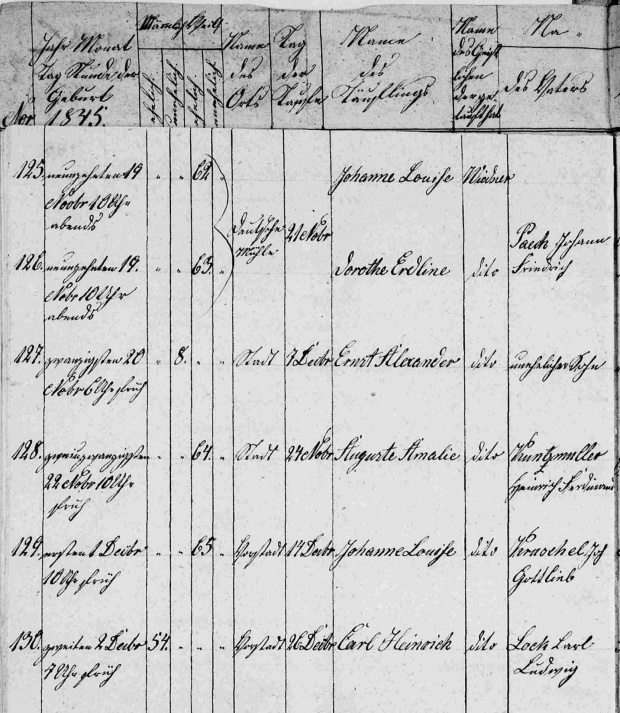 Nor
Jahr Monat
Tag Stunde der
Geburt
1845.
Männlich Weibl.
ehelich
unehelich
ehelich
unehelich
Name
des
Orts
Tag
der
Taufe
Name
des
Täuflings
Name
des Geist
lichen
der ge
tauft hat
Na-
des Vaters
125. neunzehnten 19 " " 62 " Johanne Louise
Novbr 10 Uhr
abends
Deutsche 21 Novbr
Mühle
126. neunzehnten 19. " " 63. " Dorothe Erdline dito Paech Johann
Novbr 10 Uhr Friedrich
abends
127. zwanzigsten 20 " 8. " " Stadt 7 Decbr Ernst Alexander dito unehelicher Sohn
Novbr 6 Uhr früh
128. zweiundzwanzigsten " " 64. " Stadt 24 Novbr Auguste Amalie dito Kuntzmüller
22 Novbr 10 Uhr Heinrich Ferdinand
früh
129. ersten 1 Decbr " " 65 " Vorstadt 14 Decbr Johanne Louise dito Joh
10 Uhr früh Gottlieb
130. zweiten 2 Decbr 54. " " " Vorstadt 26 Decbr Carl Heinrich dito Carl
7 Uhr früh Ludwig